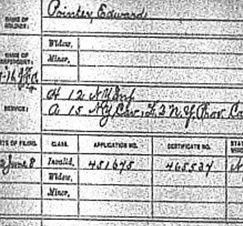 NAME OF SOLDIER: Pointer, Edward
NAME OF DEPENDENT: Widow,
Minor,
SERVICE: H 12 N.Y. Inf.
A 15 N.Y. Cav., L 2 N.Y. Prov. Ca
DATE OF FILING. CLASS. APPLICATION NO. CERTIFICATE NO. STATE
June 8 Invalid, 451675 465537
Widow,
Minor,